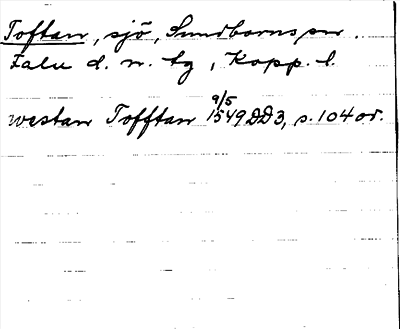 Toftan, sjö, Sundborns sn.
Falu d. n. tg, Kopp. l.
9/5
westan Tofftan 1549 DD3, s. 104 or.